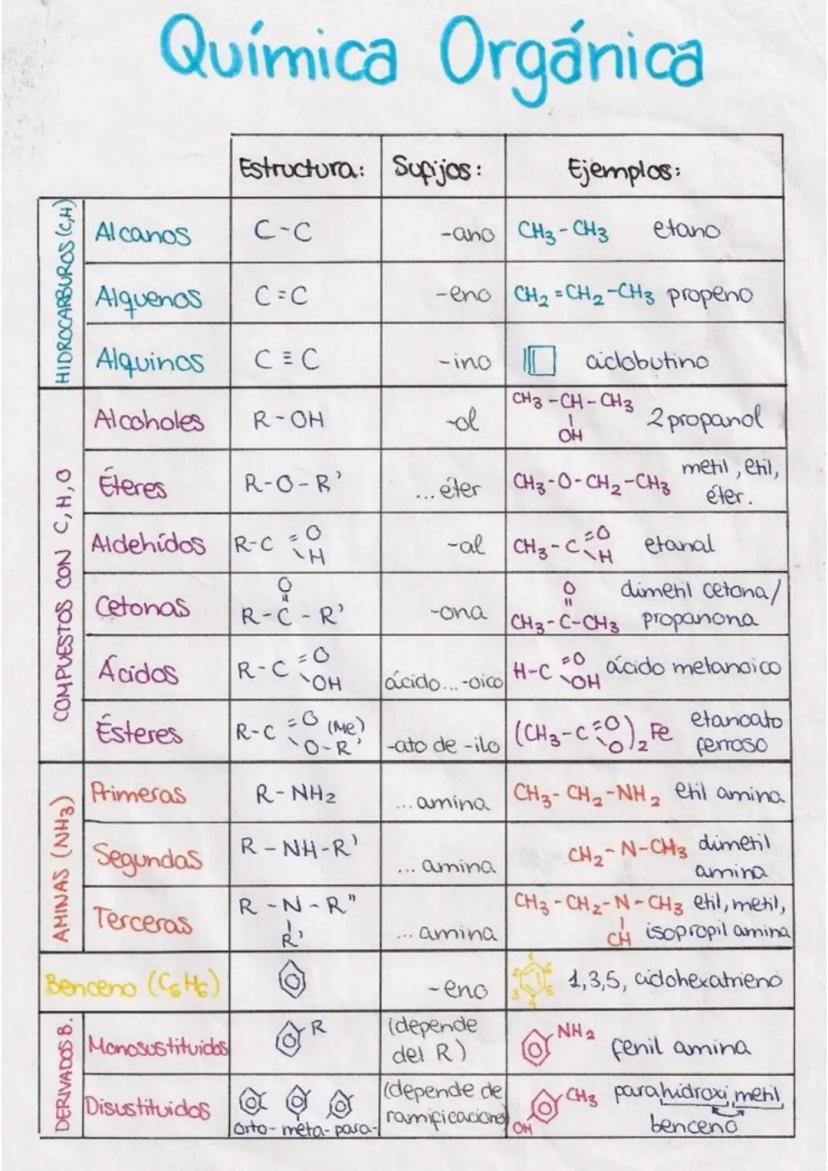 Química Orgánica
Estructura: Sufijos: Ejemplos:
HIDROCARBUROS (C,H)
Alcanos C-C -ano CH3-CH3 etano
Alquenos C=C -eno CH2=CH2-CH3 propeno
Alquinos C≡C -ino ciclobutino
COMPUESTOS CON C, H, O
Alcoholes R-OH -ol CH3-CH-CH3 2 propanol
OH
Éteres R-O-R' ...éter CH3-O-CH2-CH3 metil, etil,
éter.
Aldehídos R-C=O -al CH3-C=O etanal
H H
O O dimetil cetona/
Cetonas R-C-R' -ona CH3-C-CH3 propanona
Ácidos R-C=O ácido...-oico H-C=O ácido metanoico
OH OH
Ésteres R-C=O (Me) -ato de -ilo (CH3-C=O)2 Fe etanoato
O-R' O ferroso
AMINAS (NH3)
Primeras R-NH2 ...amina CH3-CH2-NH2 etil amina
Segundas R-NH-R' ...amina CH2-N-CH3 dimetil
amina
Terceras R-N-R" ...amina CH3-CH2-N-CH3 etil, metil,
R' CH isopropil amina
Benceno (C6H6) -eno 1,3,5, ciclohexatrieno
DERIVADOS B.
Monosustituidos R (depende NH2 fenil amina
del R)
Disustituidos (depende de CH3 parahidroxi, metil
orto- meta- para- ramificaciones) OH benceno